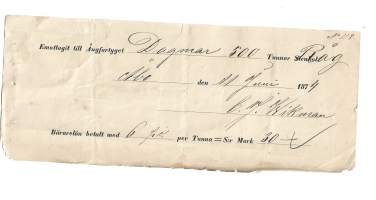 Emottagit till Ångfartyget Dagmar 500 Tunnor Stenkol Råg
Åbo den 11 Juni 1874
Wikman
Bärarelön betalt med 6 per Tunna = S:r Mark 30